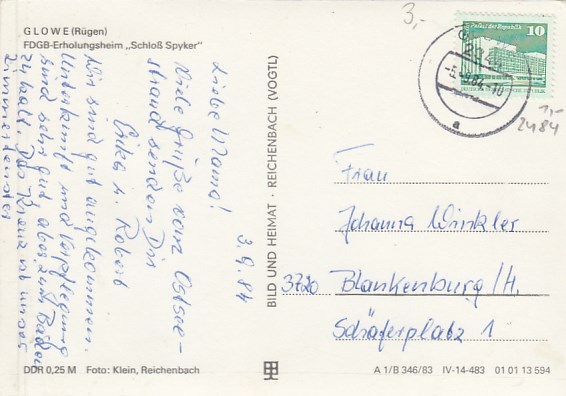 GLOWE (Rügen)
FDGB-Erholungsheim „Schloß Spyker"
3.9.84
Liebe Mama!
Viele Grüße vom Ostsee-
strand senden Dir
Erika u. Robert
Wir sind gut angekommen.
Unterkunft und Verpflegung
sind sehr gut aber zum Baden
zu kalt. Das Kreuz ist unser
Zimmerfenster
BILD UND HEIMAT · REICHENBACH (VOGTL)
3,-
Palast der Republik
10
-5.-9.84-10
a
1,-
2484
Frau
Johanna Winkler
3720 Blankenburg/H.
Schäferplatz 1
DDR 0,25 M Foto: Klein, Reichenbach
A 1/B 346/83 IV-14-483 01 01 13 594